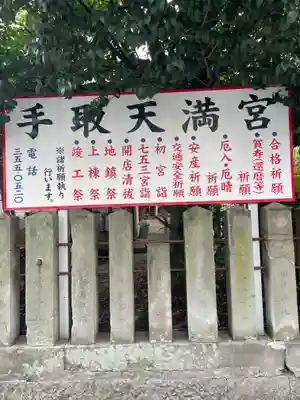 手取天満宮
●合格祈願
賀寿(還暦等)祈願
●厄入・厄晴祈願
●安産祈願
交通安全祈願
●初宮詣
●七五三宮詣
●開店清祓
●地鎮祭
●上棟祭
●竣工祭
※諸祈願執り行います。
電話
三五五〇五二〇